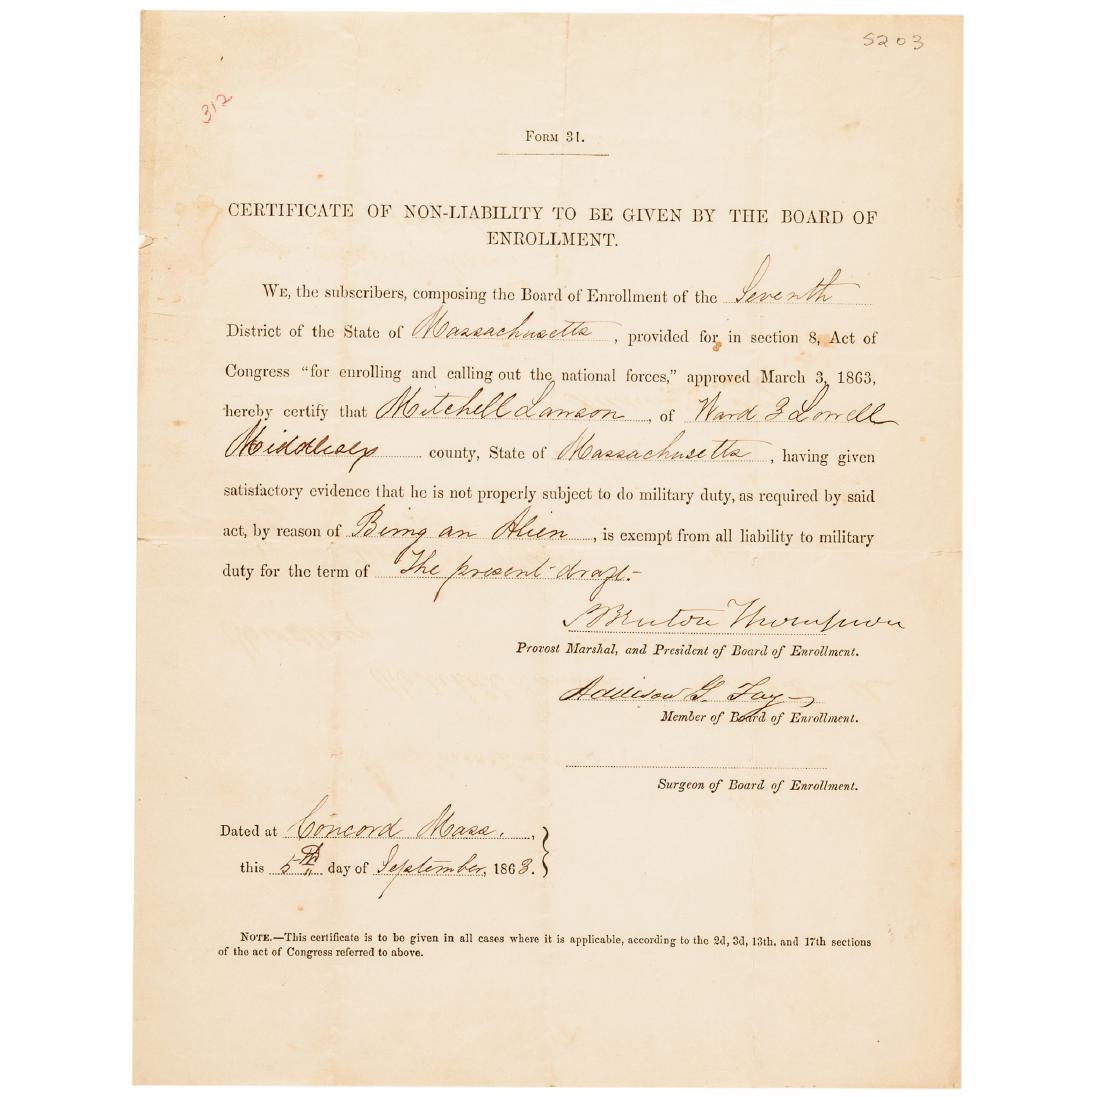 5203
312
Form 31.
CERTIFICATE OF NON-LIABILITY TO BE GIVEN BY THE BOARD OF
ENROLLMENT.
WE, the subscribers, composing the Board of Enrollment of the Seventh
District of the State of Massachusetts, provided for in section 8, Act of
Congress "for enrolling and calling out the national forces," approved March 3, 1863,
hereby certify that Mitchell Lawson, of Ward 3 Lowell
Middlesex county, State of Massachusetts, having given
satisfactory evidence that he is not properly subject to do military duty, as required by said
act, by reason of Being an Alien, is exempt from all liability to military
duty for the term of The present draft.
Bruton Thompson
Provost Marshal, and President of Board of Enrollment.
Addison G. Fay
Member of Board of Enrollment.
Surgeon of Board of Enrollment.
Dated at Concord Mass.,
this 5th day of September, 1863.
NOTE.—This certificate is to be given in all cases where it is applicable, according to the 2d, 3d, 13th. and 17th sections
of the act of Congress referred to above.